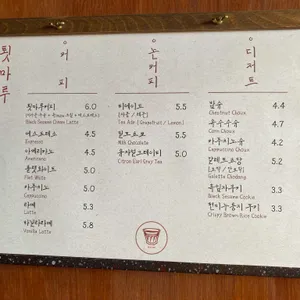 툇마루
커피
툇마루커피 6.0
Black Sesame Cream Latte
에스프레소 4.5
Espresso
아메리카노 4.5
Americano
플랫화이트 5.0
Flat White
카푸치노 5.0
Cappuccino
라떼 5.3
Latte
바닐라라떼 5.8
Vanilla Latte
논커피
티에이드 5.5
(자몽 / 레몬)
Tea Ade (Grapefruit / Lemon)
밀크초코 5.5
Milk Chocolate
유자얼그레이티 5.5
Citron Earl Grey Tea
디저트
밤슈 4.4
Chestnut Choux
옥수수슈 4.7
Corn Choux
카푸치노슈 4.2
Cappuccino Choux
갈레트쇼콩 5.2
흑임자쿠키 3.3
Black Sesame Cookie
현미누룽지쿠키 3.3
Crispy Brown-Rice Cookie